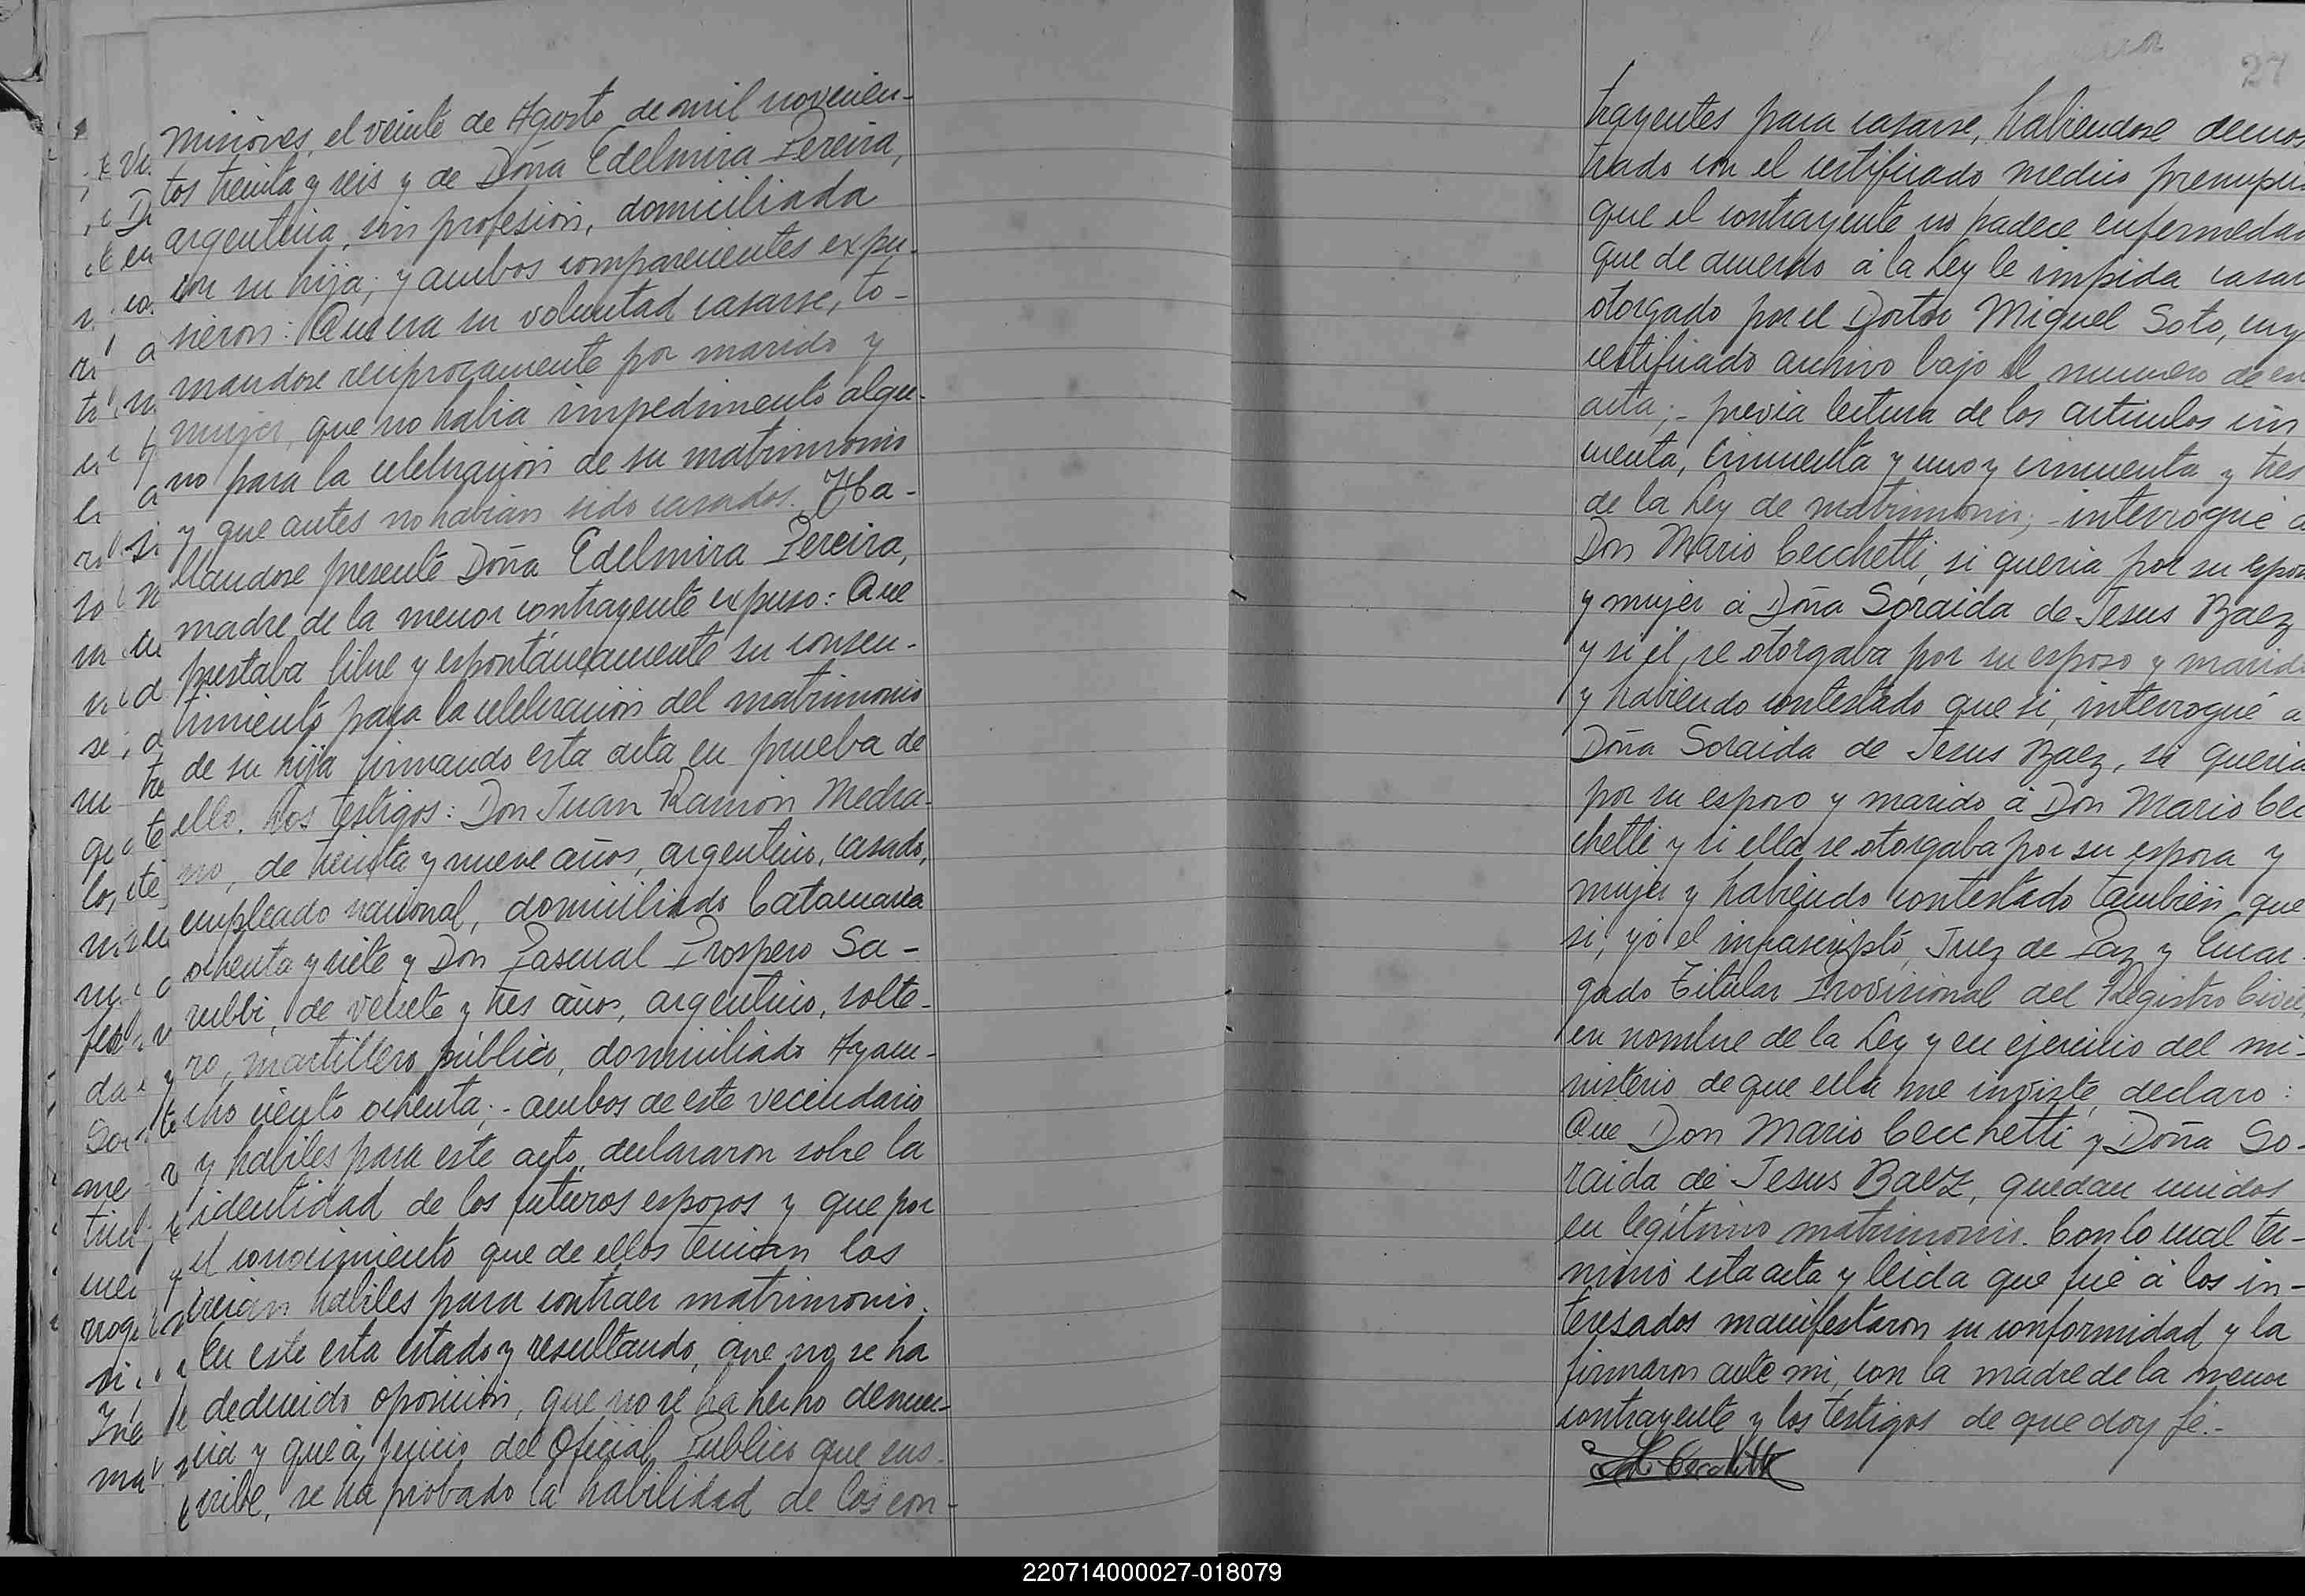 Misiones, el veinte de Agosto de mil novecien-
tos treinta y seis y de Doña Edelmira Pereira,
argentina, sin profesión, domiciliada
con su hija; y ambos comparecientes expu-
sieron: Que era su voluntad casarse, to-
mandose reciprocamente por marido y
mujer, que no habia impedimento algu-
no para la celebración de su matrimonio
y que antes no habian sido casados. Ha-
llandose presente Doña Edelmira Pereira,
madre de la menor contrayente expuso: Que
prestaba libre y espontáneamente su consen-
timiento para la celebración del matrimonio
de su hija firmando esta acta en prueba de
ello. Los testigos: Don Juan Ramón Medra-
no, de treinta y nueve años, argentino, casado,
empleado nacional, domiciliado Catamarca
ochenta y siete y Don Pascual Prospero Sa-
rubbi, de veinte y tres años, argentino, solte-
ro, martillero público, domiciliado Ayacu-
cho ciento ochenta;- ambos de este vecindario
y habiles para este acto, declararon sobre la
identidad de los futuros esposos y que por
el conocimiento que de ellos tenian los
creian habiles para contraer matrimonio.
En este esta estado y resultando, que no se ha
deducido oposición, que no se ha hecho denun-
cia y que á juicio del Oficial Publico que sus-
cribe, se ha probado la habilidad de los con-
27
trayentes para casarse, habiendose demos
trado con el certificado medico prenupci
que el contrayente no padece enfermedad
que de acuerdo á la Ley le impida casar
otorgado por el Doctor Miguel Soto, cuy
certificado archivo bajo el numero de es
acta;- previa lectura de los articulos cin
cuenta, cincuenta y uno y cincuenta y tres
de la Ley de matrimonio;- interrogué a
Don Mario Cecchetti, si queria por su espos
y mujer á Doña Soraida de Jesus Baez
y si él, se otorgaba por su esposo y marido
y habiendo contestado que si, interrogué a
Doña Soraida de Jesus Baez, si queria
por su esposo y marido á Don Mario Cec
chetti y si ella se otorgaba por su esposa y
mujer y habiendo contestado también que
si; yo el infrascripto, Juez de Paz y Encar-
gado Titular Provisional del Registro Civil,
en nombre de la Ley y en ejercicio del mi-
nisterio de que ella me inviste, declaro:
Que Don Mario Cecchetti y Doña So-
raida de Jesus Baez, quedan unidos
en legítimo matrimonio. Con lo cual ter-
minó esta acta y leida que fué á los in-
teresados manifestaron su conformidad y la
firmaron ante mi, con la madre de la menor
contrayente y los testigos de que doy fé.-
220714000027-018079